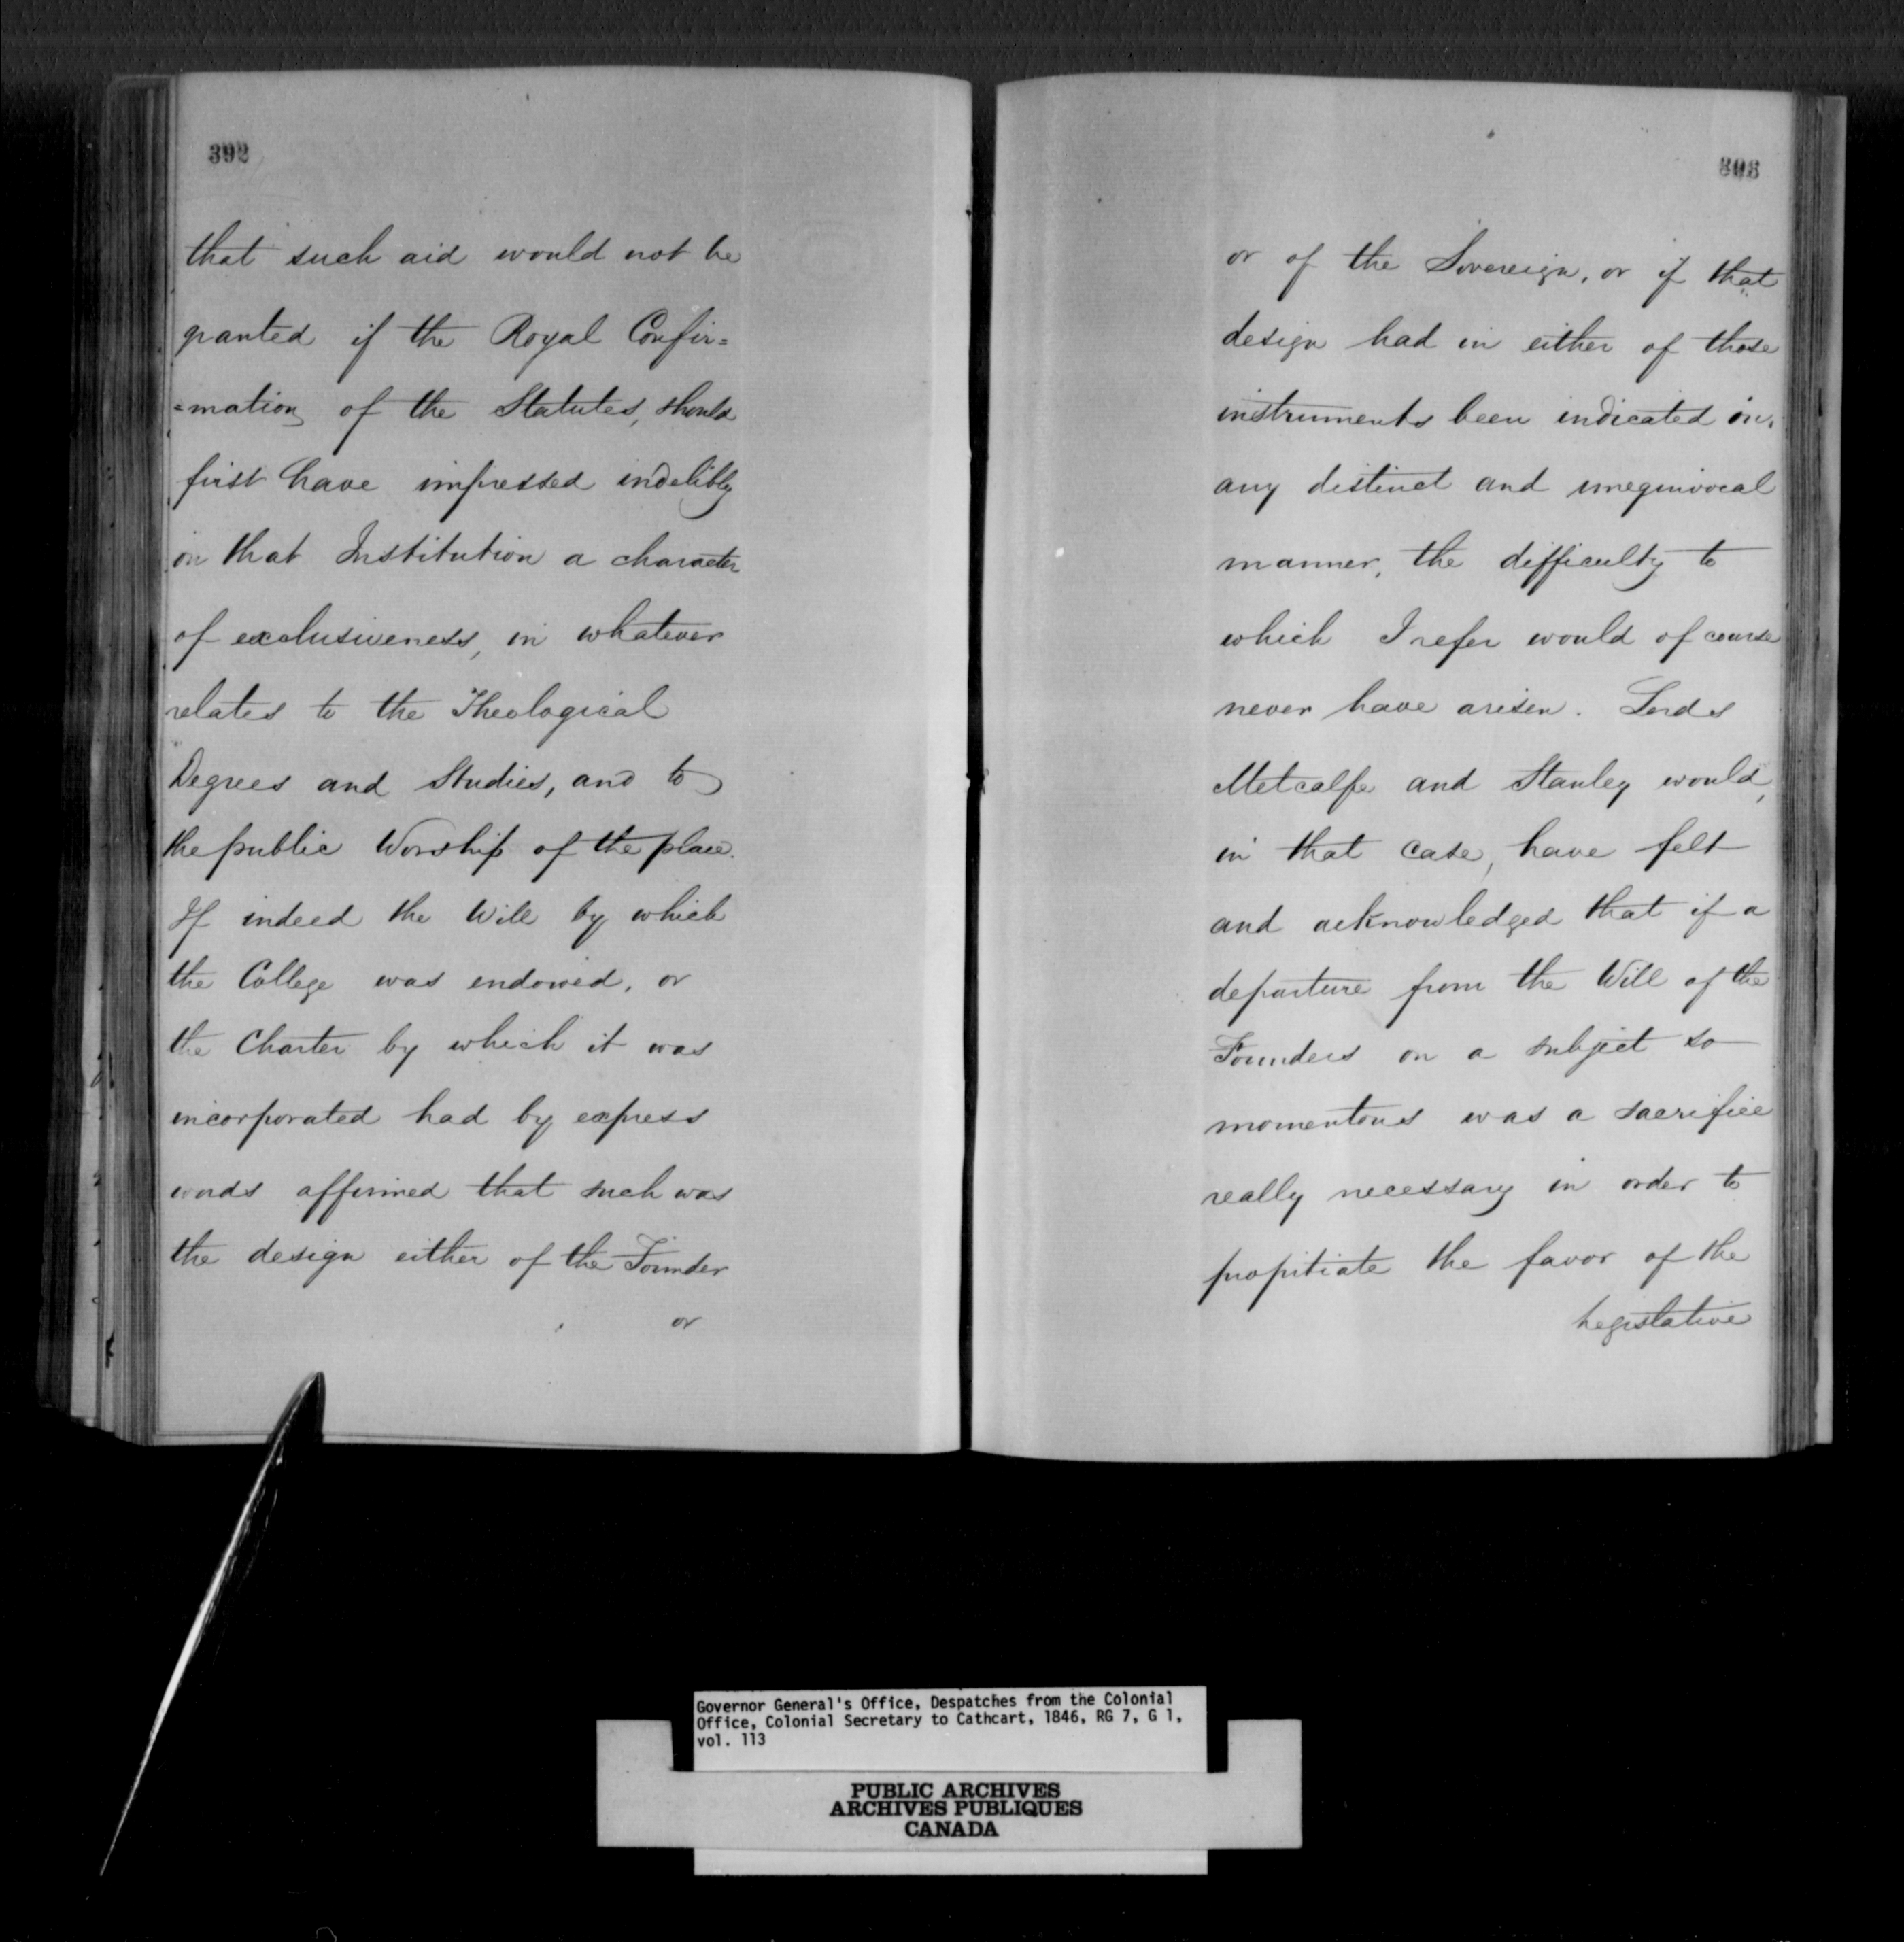 392
that such aid would not be
granted if the Royal Confir=
=mation of the Statutes, should
first have impressed indelibly
on that Institution a character
of exclusiveness, in whatever
relates to the Theological
Degrees and Studies, and to
the public Worship of the place.
If indeed the Will by which
the College was endowed, or
the Charter by which it was
incorporated had by express
words affirmed that such was
the design either of the Founder
or
or of the Sovereign, or if that
design had in either of those
instruments been indicated in
any distinct and unequivocal
manner, the difficulty to
which I refer would of course
never have arisen. Lords
Metcalfe and Stanley would,
in that case, have felt
and acknowledged that if a
departure from the Will of the
Founders on a subject so
momentous was a sacrifice
really necessary in order to
propitiate the favor of the
Legislative
Governor General's Office, Despatches from the Colonial
Office, Colonial Secretary to Cathcart, 1846, RG 7, G 1,
vol. 113
PUBLIC ARCHIVES
ARCHIVES PUBLIQUES
CANADA